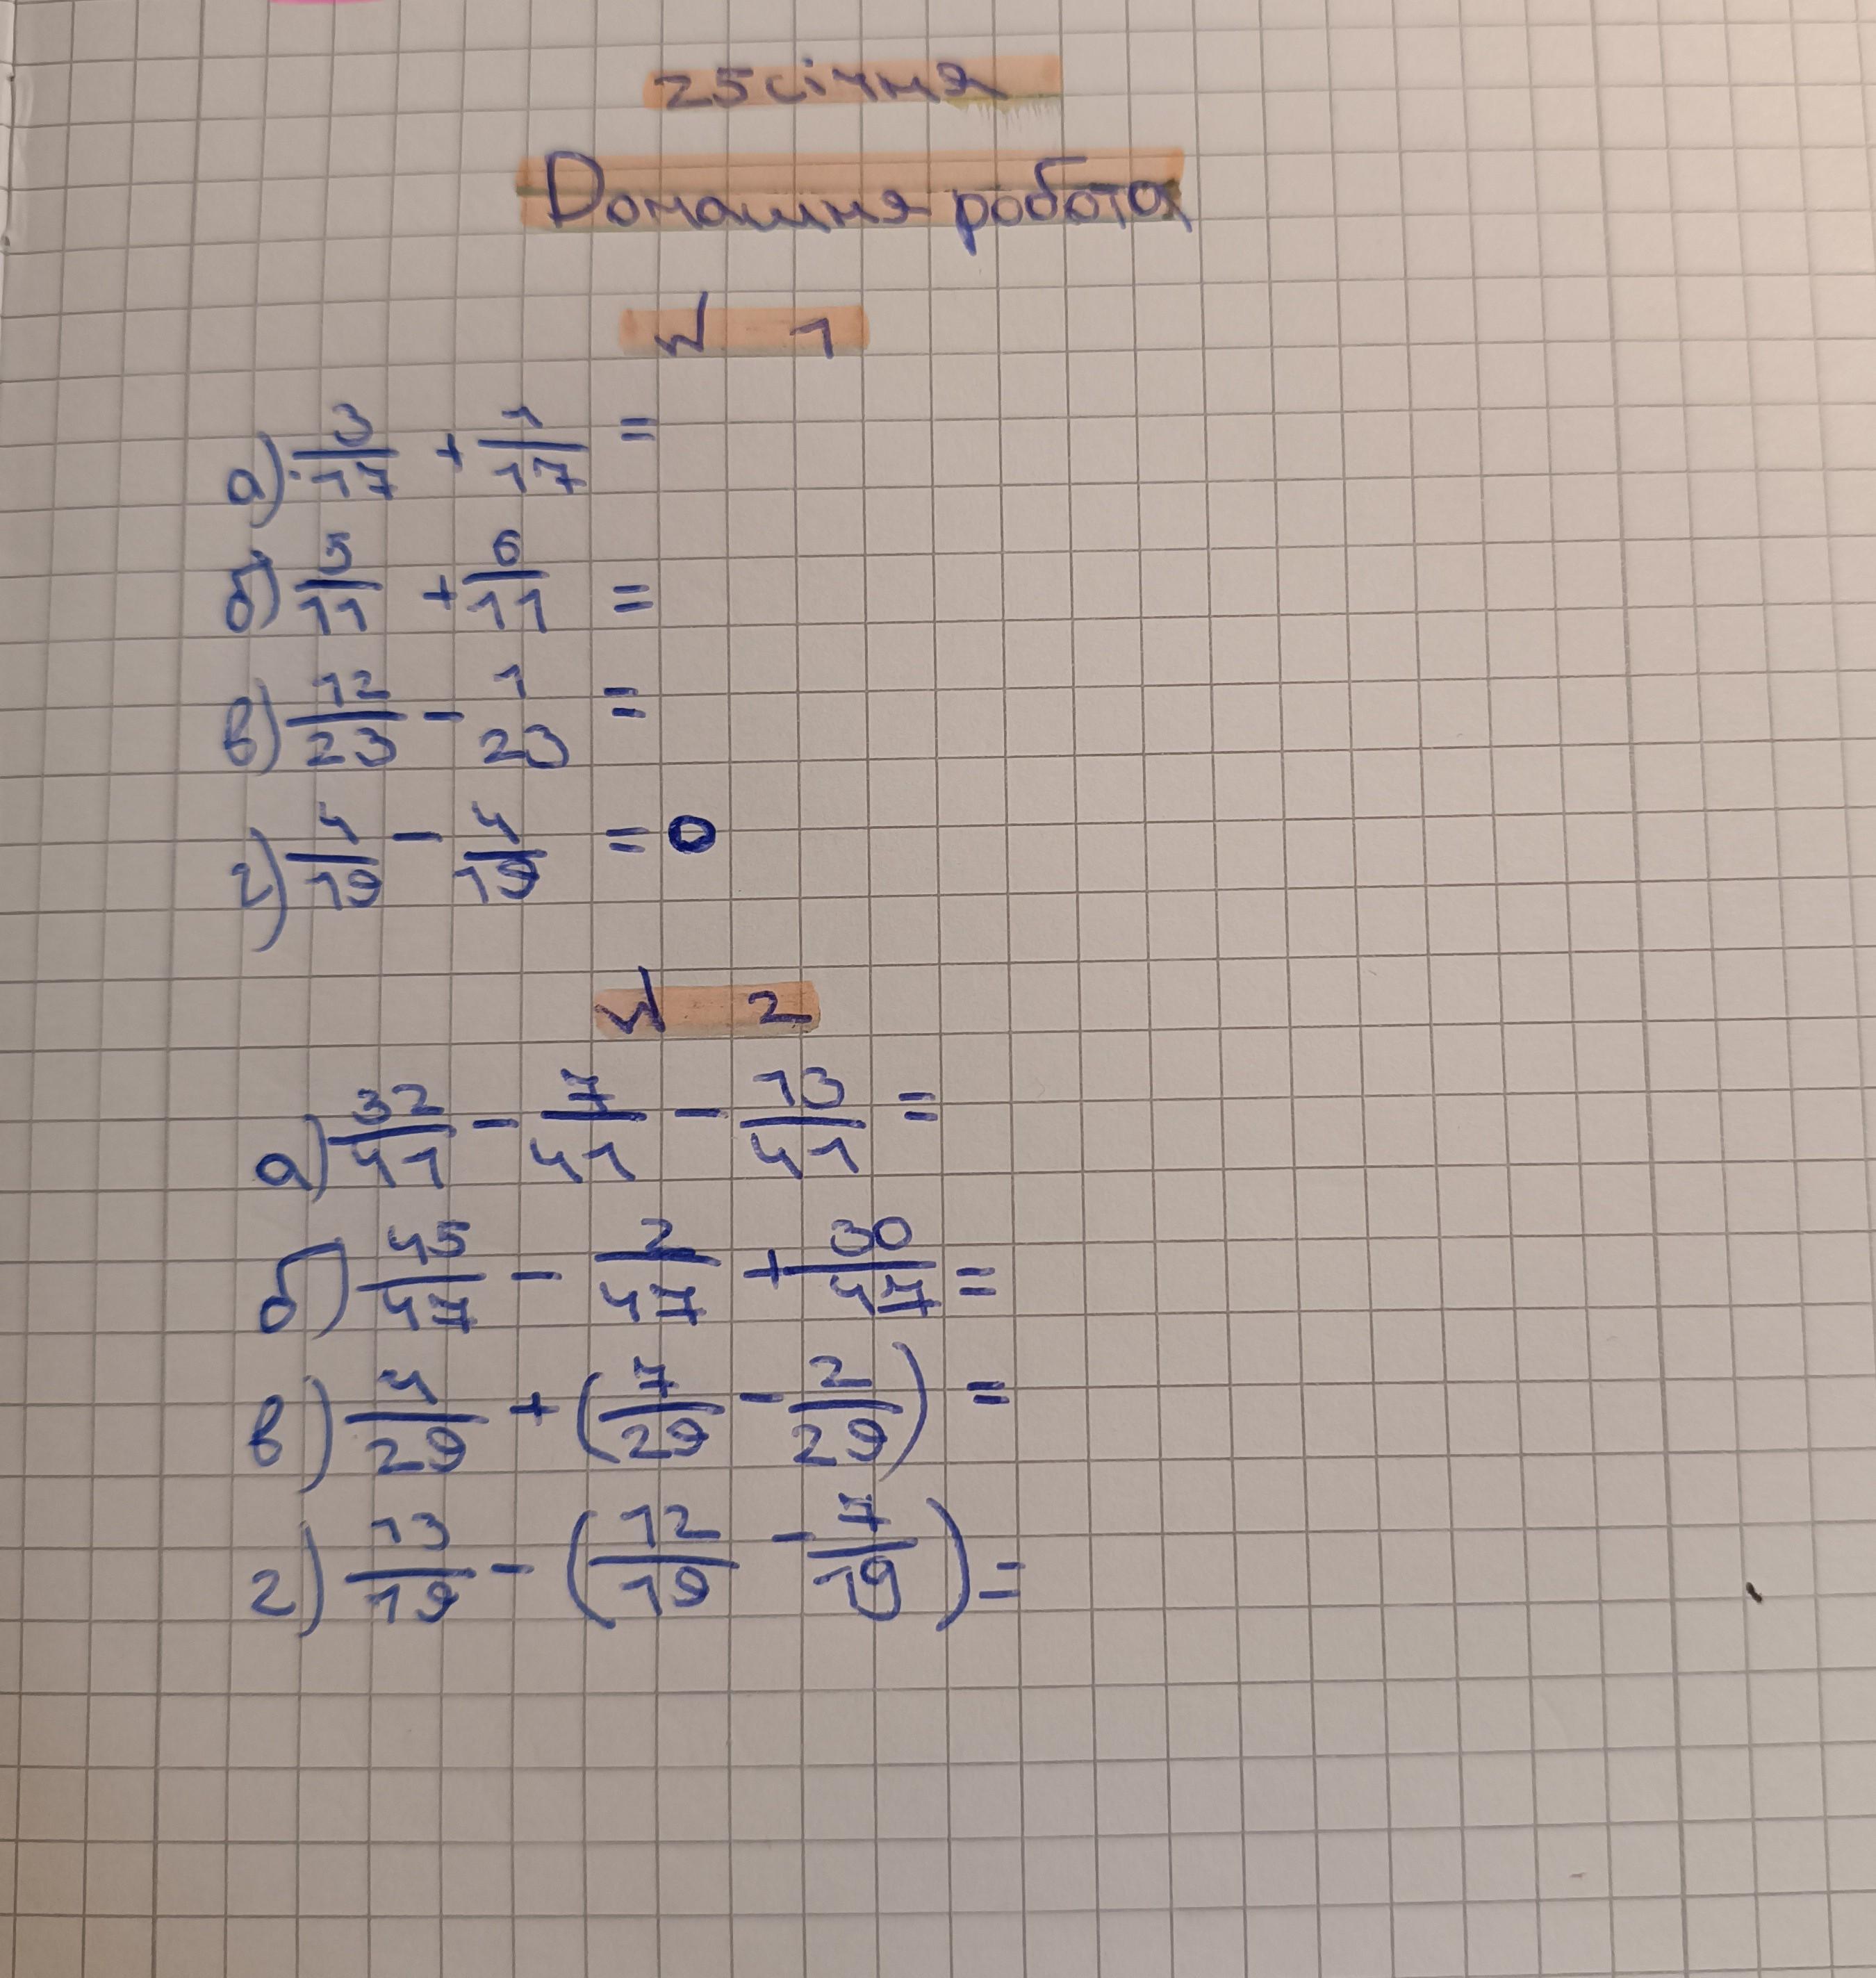 25 січня
Домашня робота
№ 1
а) 3/17 + 1/17 =
б) 5/11 + 6/11 =
в) 12/23 - 1/23 =
г) 4/19 - 4/19 = 0
№ 2
а) 32/41 - 7/41 - 13/41 =
б) 45/47 - 2/47 + 30/47 =
в) 4/29 + (7/29 - 2/29) =
г) 13/19 - (12/19 - 7/19) =